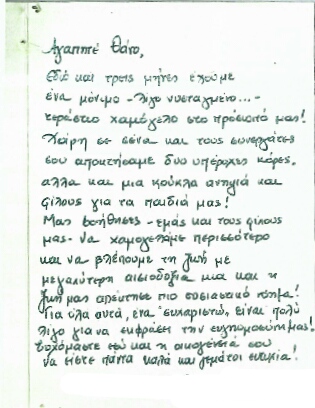 Αγαπητέ Θάνο,
Εδώ και τρεις μήνες έχουμε
ένα μόνιμο - λίγο νυσταγμένο...-
τεράστιο χαμόγελο στο πρόσωπό μας!
Χάρη σε σένα και τους συνεργάτες
σου αποκτήσαμε δυο υπέροχες κόρες,
αλλά και μια κούκλα ανηψιά και
φίλους για τα παιδιά μας!
Μας βοήθησες - εμάς και τους φίλους
μας - να χαμογελάμε περισσότερο
και να βλέπουμε τη ζωή με
μεγαλύτερη αισιοδοξία μια και η
ζωή μας απέκτησε πιο ουσιαστικό νόημα!
Για όλα αυτά, ένα "ευχαριστώ", είναι πολύ
λίγο για να εκφράσει την ευγνωμοσύνη μας!
Ευχόμαστε εσύ και η οικογένειά σου
να είστε πάντα καλά και γεμάτοι ευτυχία!